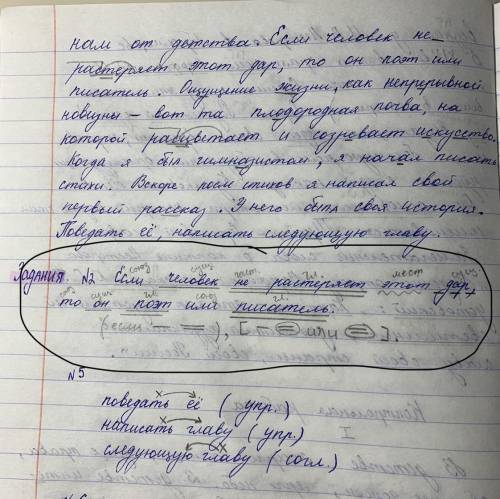 нам от детства. Если человек не
растеряет этот дар, то он поэт или
писатель. Ощущение жизни, как непрерывной
новизны – вот та плодородная почва, на
которой расцветает и созревает искусство.
Когда я был гимназистом, я начал писать
стихи. Вскоре после стихов я написал свой
первый рассказ. У него была своя история.
Поведать её, написать следующую главу.
Задания. №2 Если человек не растеряет этот дар,
то он поэт или писатель.
(если – =), [– = или =].
№5
поведать её (упр.)
написать главу (упр.)
следующую главу (согл.)